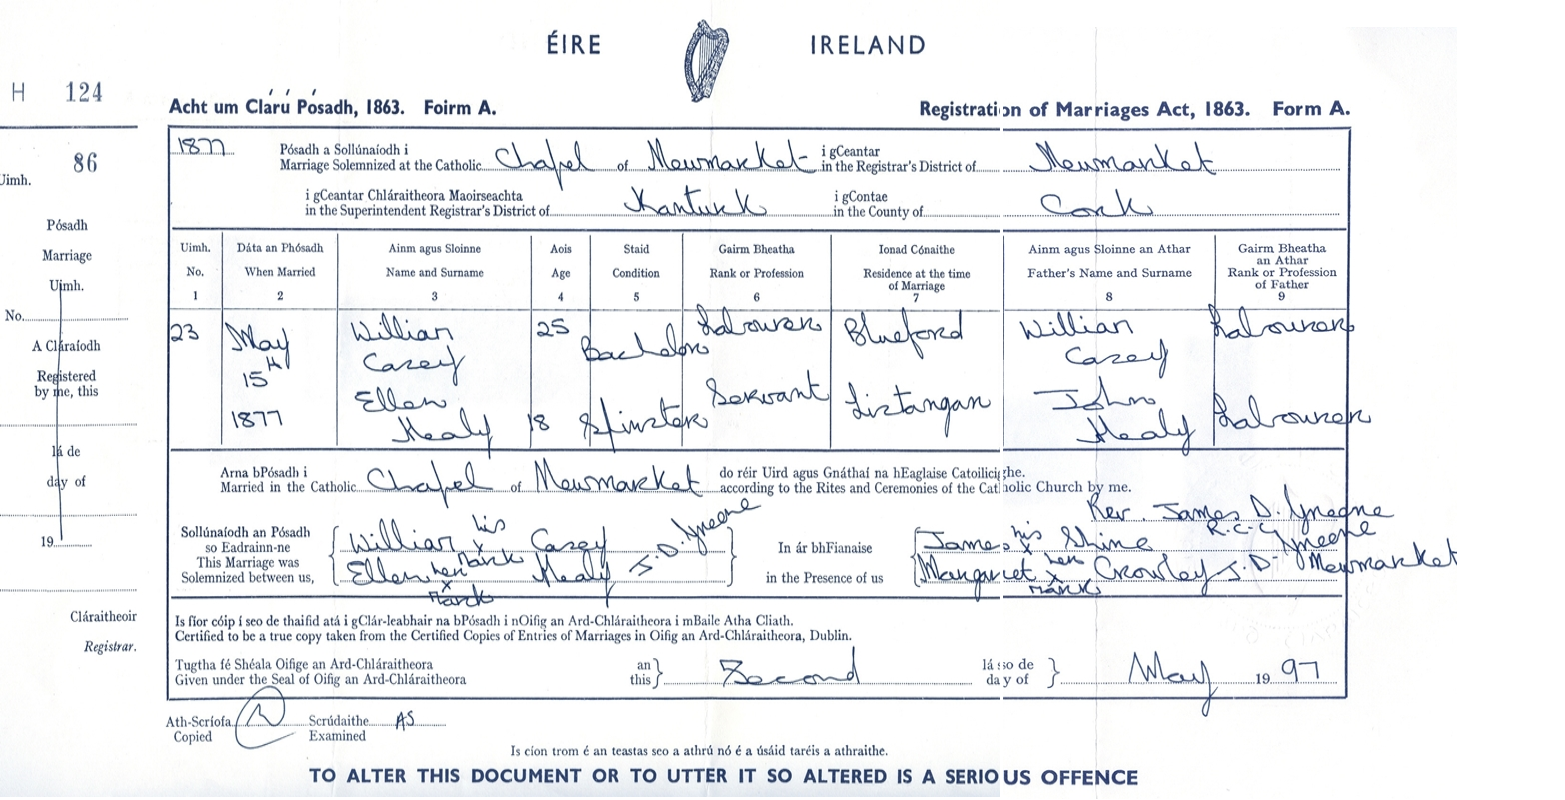 ÉIRE IRELAND
H 124
Acht um Clárú Pósadh, 1863. Foirm A. Registration of Marriages Act, 1863. Form A.
86
Uimh.
Pósadh
Marriage
Uimh.
No.
A Cláraíodh
Registered
by me, this
lá de
day of
19
Cláraitheoir
Registrar.
1877 Pósadh a Sollúnaíodh i
Marriage Solemnized at the Catholic Chapel of Newmarket
i gCeantar
in the Registrar's District of Newmarket
i gCeantar Chláraitheora Maoirseachta
in the Superintendent Registrar's District of Kanturk
i gContae
in the County of Cork
Uimh. Dáta an Phósadh Ainm agus Sloinne Aois Staid Gairm Bheatha Ionad Cónaithe Ainm agus Sloinne an Athar Gairm Bheatha an Athar
No. When Married Name and Surname Age Condition Rank or Profession Residence at the time of Marriage Father's Name and Surname Rank or Profession of Father
1 2 3 4 5 6 7 8 9
23 May 15th 1877 William Casey 25 Bachelor Labourer Blueford William Casey Labourer
Ellen Healy 18 Spinster Servant Listangan John Healy Labourer
Arna bPósadh i
Married in the Catholic Chapel of Newmarket
do réir Uird agus Gnáthaí na hEaglaise Catoilicighe.
according to the Rites and Ceremonies of the Catholic Church by me.
Rev. James D. Greene
R.C.C.
Sollúnaíodh an Pósadh
so Eadrainn-ne
This Marriage was
Solemnized between us,
William his x mark Casey
Ellen her x mark Healy
J.D. Greene
In ár bhFianaise
in the Presence of us
James his x Shine
Margaret her x mark Crowley J.D. Greene Newmarket
Is fíor cóip í seo de thaifid atá i gClár-leabhair na bPósadh i nOifig an Ard-Chláraitheora i mBaile Atha Cliath.
Certified to be a true copy taken from the Certified Copies of Entries of Marriages in Oifig an Ard-Chláraitheora, Dublin.
Tugtha fé Shéala Oifige an Ard-Chláraitheora
Given under the Seal of Oifig an Ard-Chláraitheora
an
this Second
lá so de
day of May 1997
Ath-Scríofa Scrúdaithe AS
Copied Examined
Is cion trom é an teastas seo a athrú nó é a úsáid taréis a athraithe.
TO ALTER THIS DOCUMENT OR TO UTTER IT SO ALTERED IS A SERIOUS OFFENCE